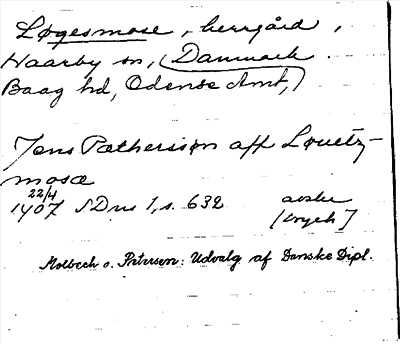 Løgesmose, herrgård,
Haarby sn, (Danmark
Baag hd, Odense Amt,)
Jens Pætherssøn aff Løuetz-
mosæ
22/4
1407 SDns 1, s. 632 avskr
[tryck]
Molbech o. Petersen: Udvalg af Danske Dipl.